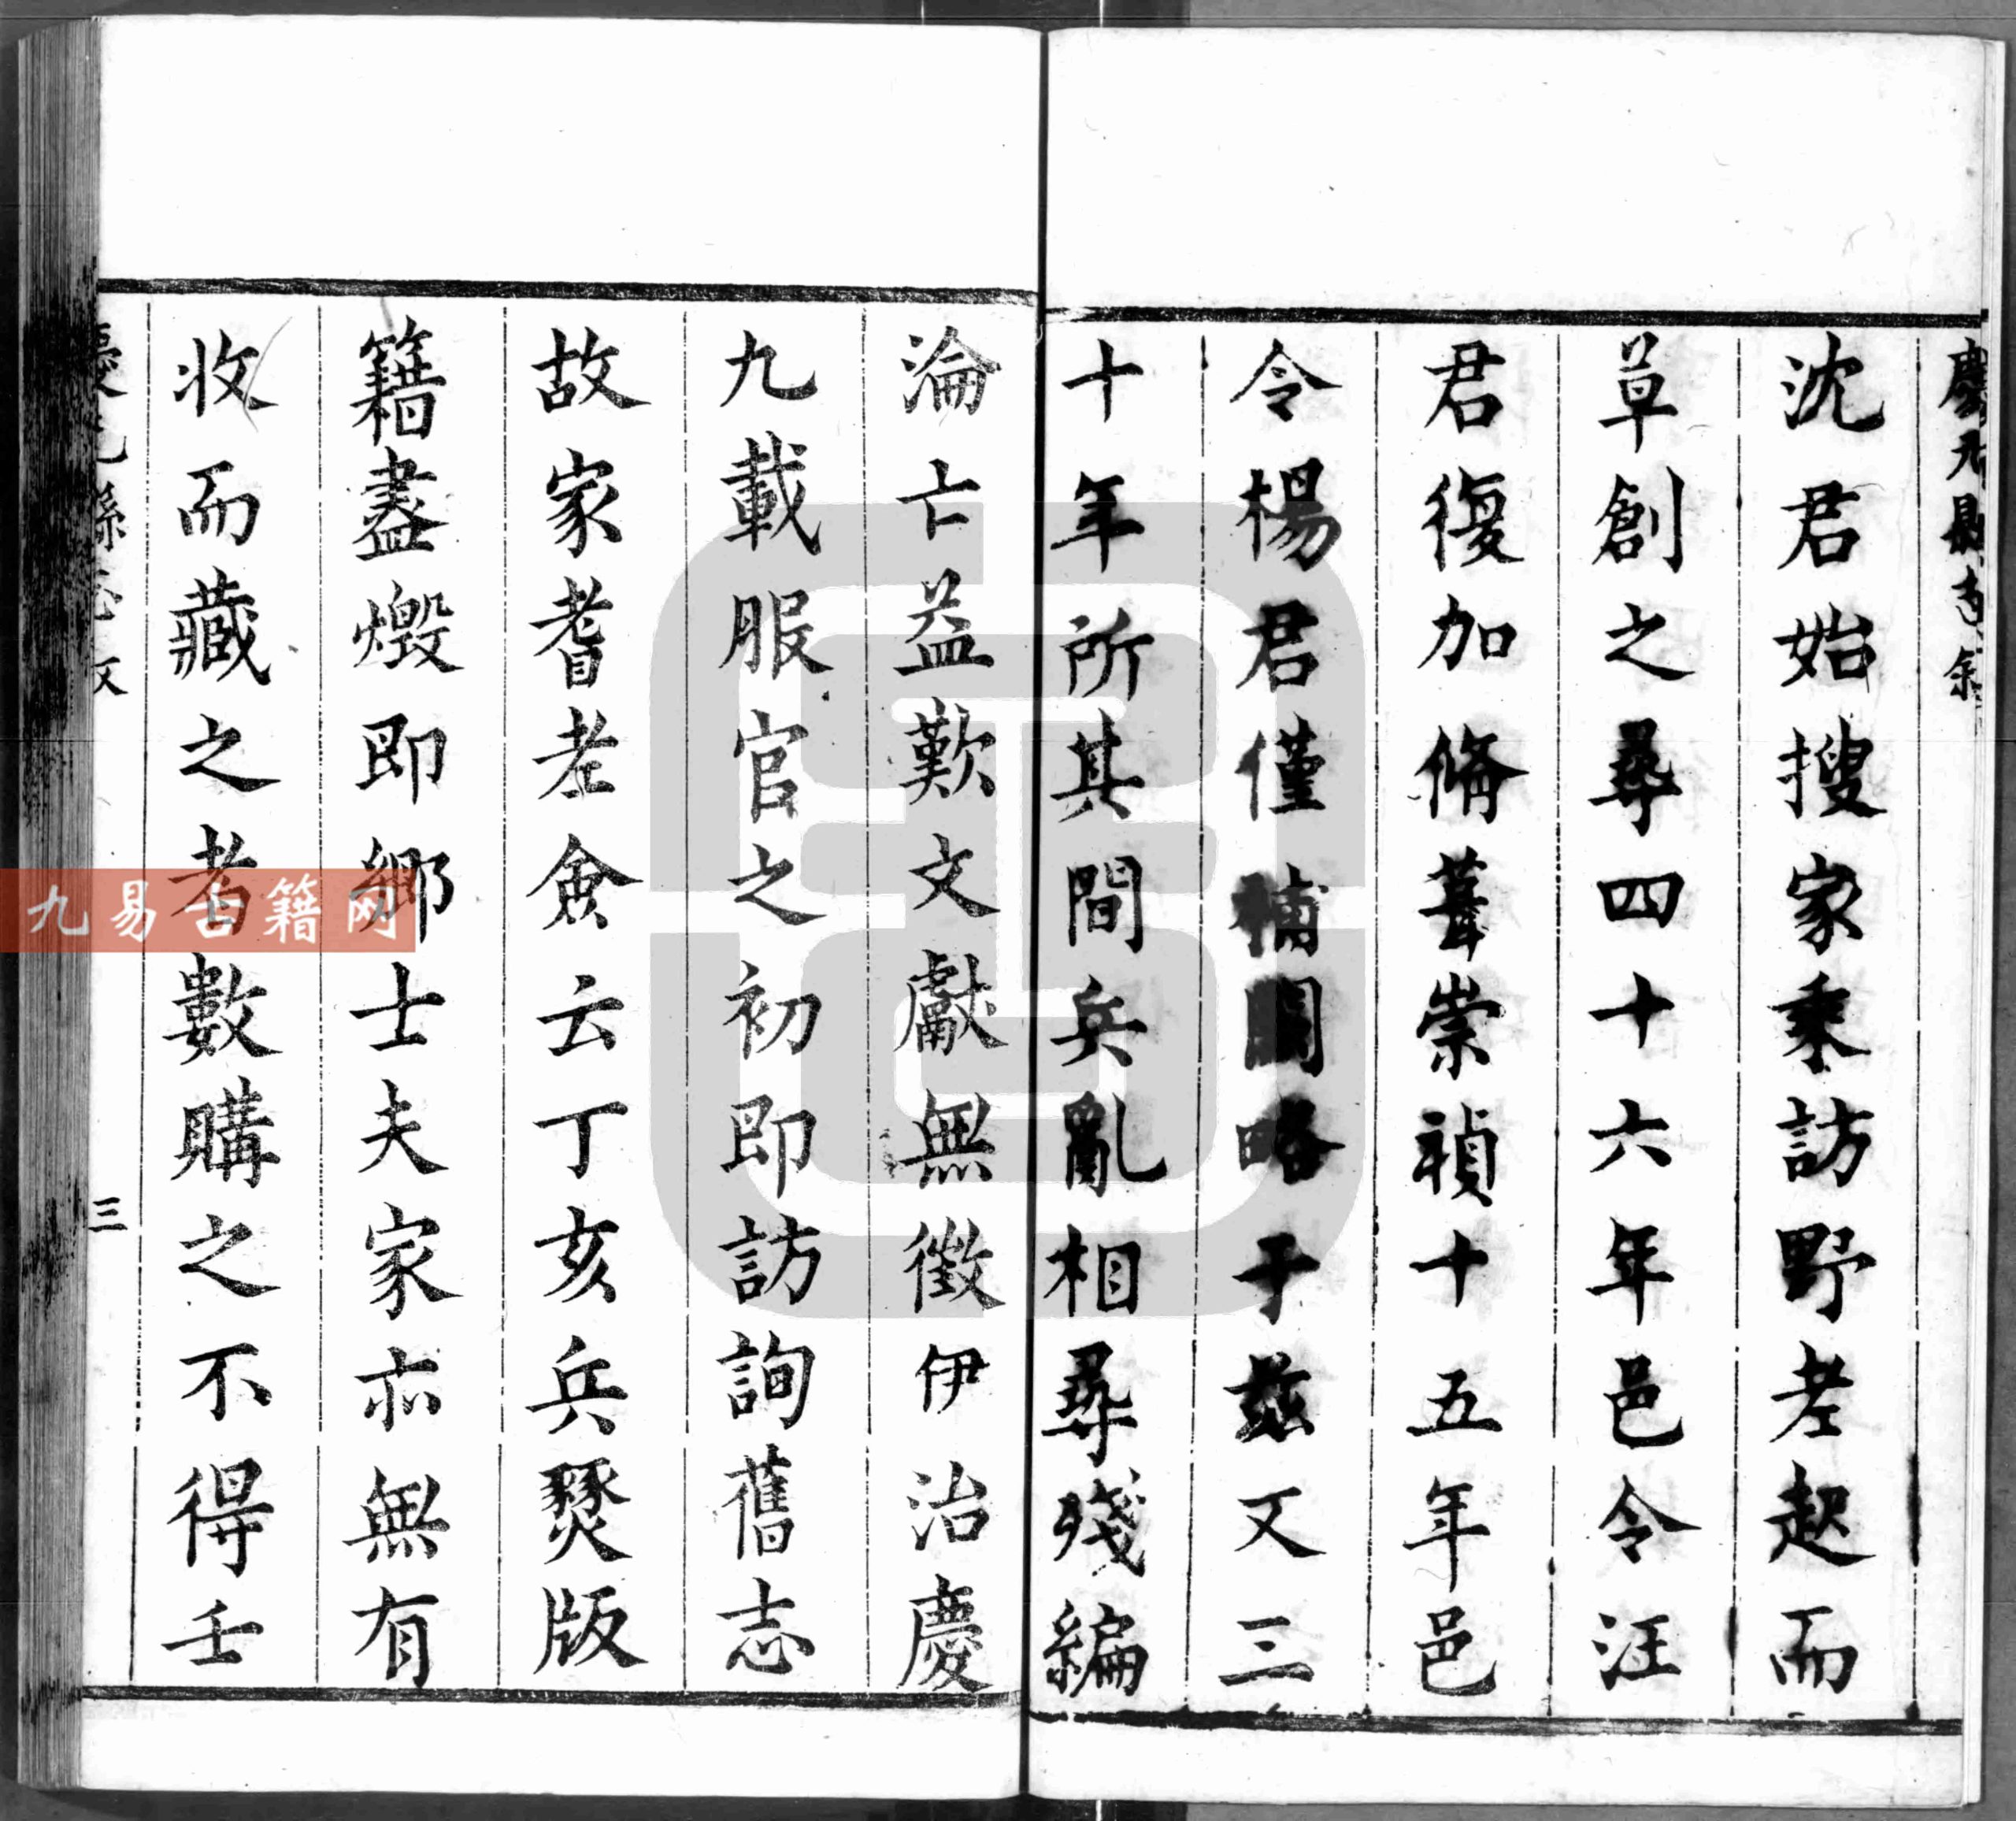 慶元縣志 叙
沈君始搜家乘訪野老起而
草創之尋四十六年邑令汪
君復加脩葺崇禎十五年邑
令楊君僅補闕略于茲又三
十年所其間兵亂相尋殘編
淪亡益歎文獻無徵伊治慶
九載服官之初即訪詢舊志
故家耆老僉云丁亥兵燹版
籍盡燬即鄉士夫家亦無有
收而藏之者數購之不得壬
慶元縣志 文 三
九易古籍网